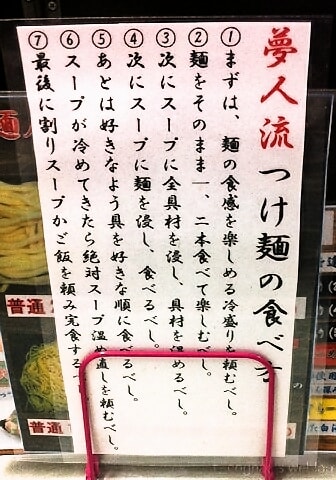 夢人流 つけ麺の食べ方
①まずは、麺の食感を楽しめる冷盛りを頼むべし。
②麺をそのまま一、二本食べて楽しむべし。
③次にスープに全具材を浸し、具材を温めるべし。
④次にスープに麺を浸し、食べるべし。
⑤あとは好きなよう具を好きな順に食べるべし。
⑥スープが冷めてきたら絶対スープ温め直しを頼むべし。
⑦最後に割りスープかご飯を頼み完食する
普通
普通